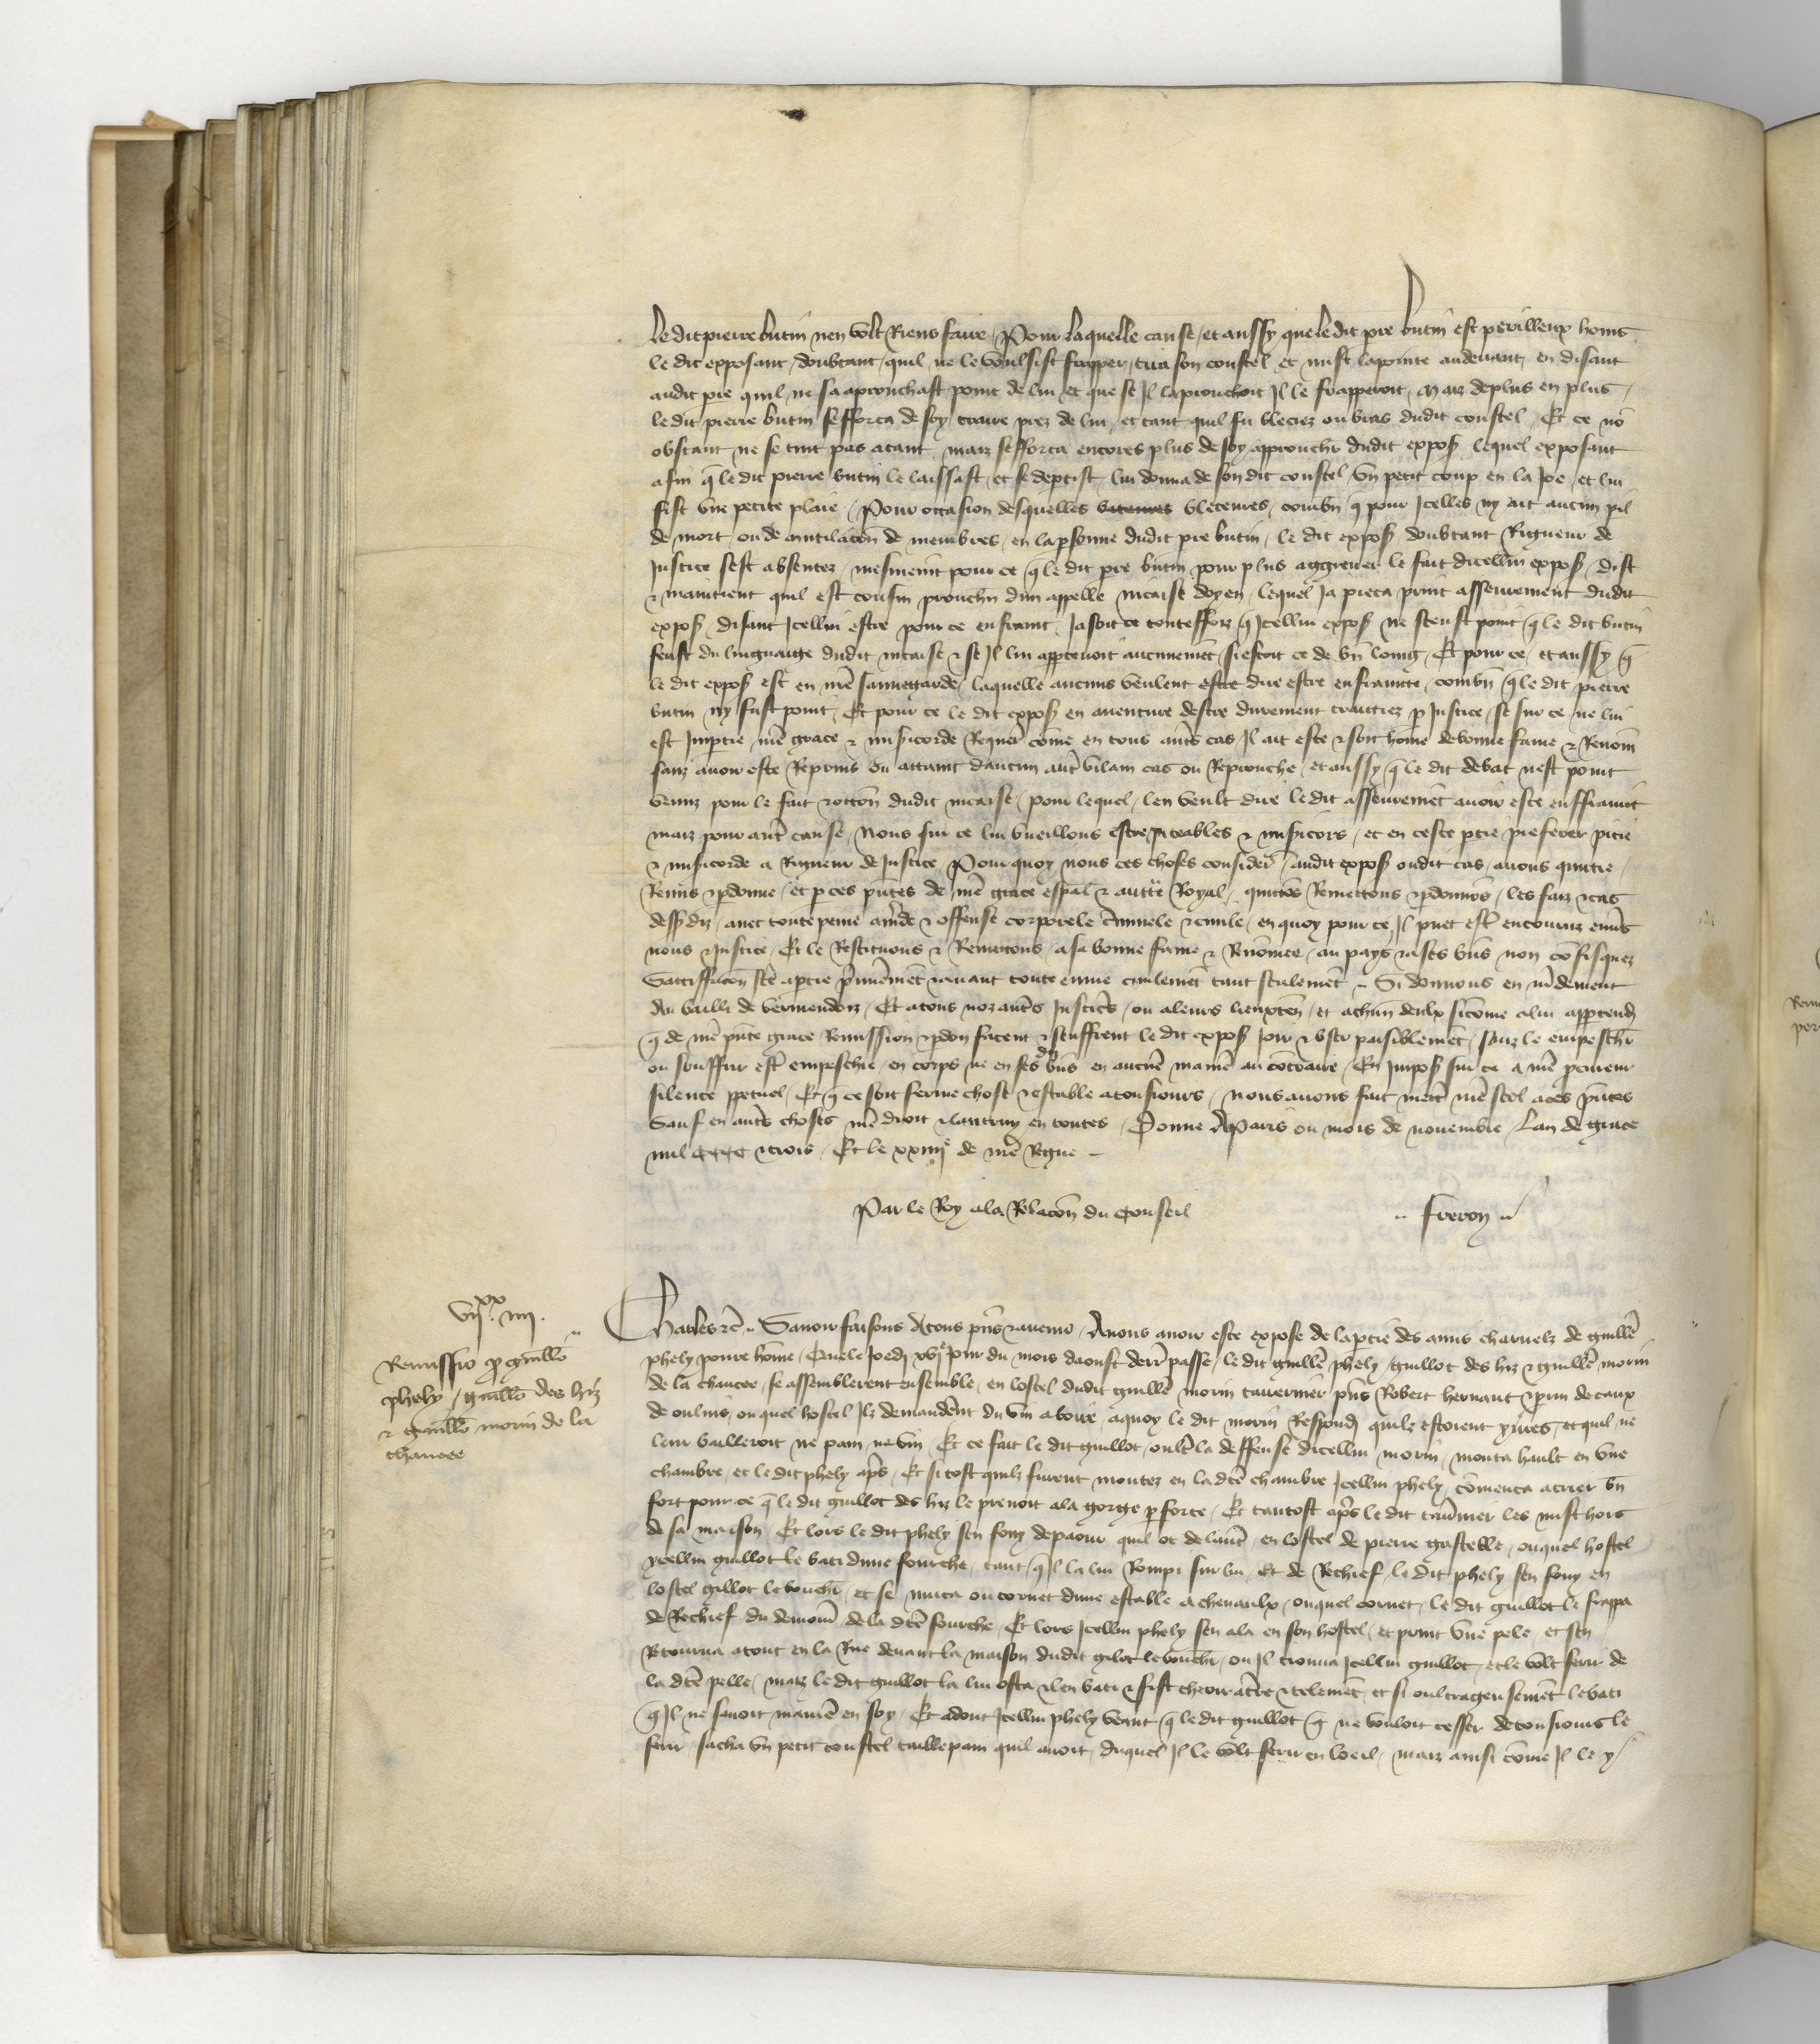 Le dit pierre butin nen volt Riens faire / Pour laquelle cause / et aussy que le dit pre butin est perilleux homs
le dit exposant / doubtant / quil ne le voulsist frapper / tira son coustel et mist la pointe audevant / en disant
audit pre quil ne sa aprouchast point de lui et que se Il laprouchoit Il le frapperoit / Maiz de plus en plus /
le dit pierre butin sefforca de soy traire prez de lui / et tant quil fu bleciez ou bras dudit coustel / Et ce no
obstant ne se tint pas atant / maiz sefforca encores plus de soy approuchr dudit expos / lequel exposant
afin q le dit pierre butin le laissast / et se deptist / lui donna de son dit coustel vn petit coup en la Joe / et lui
fist vne petite plaie / Pour occasion desquelles bleceures / combn q pour Icelles ny ait aucun pil
de mort / ou de mutilacon de membres / en la psonne dudit pre butin / le dit expos doubtant Rigueur de
Justice sest absentez / mesmemt pour ce q le dit pre butin pour plus aggrever le fait dicellui expos / dist
& maintient quil est cousin prouchn dun appelle nicaise doyen / lequel Ja pieca print asseurement dudit
expos / disant Icellui estre pour ce enfraint / Jasoit ce touteffoiz q Icellui expos ne sceust point q le dit butin
feust du linguaige dudit nicaise & se Il lui apptenoit aucunemet / si estoit ce de bn loing / Et pour ce / et aussy q
le dit expos est en nre sauvegarde / laquelle aucuns veulent dire estre enfrainte / combn q le dit pierre
butin ny fust point / Et pour ce le dit expos en aventure destre durement traittiez p Justice / se sur ce ne lui
est Imptie nre grace & misicorde Requer come en tous autrs cas Il ait este & soit home de bonne fame & Renom
sanz avoir este Reprins ou attaint daucun autr vilain cas ou Reprouche / et aussy q le dit debat nest point
venuz pour le fait & occon dudit nicaise / pour lequel / len veult dire le dit asseuremet avoir este enffraint
maiz pour autr cause / Nous sur ce lui vueillons estre piteables & misicors / et en ceste ptie preferer pitie
& misicorde a Rigueur de Justice / Pour quoy nous ces choses consider / audit expos oudit cas / avons quittie /
Remis & pdonne / et p ces pntes de nre grace espal & autte Royal / quittos Remettons & pdonnos / les faiz & cas
dess diz / avec toute peine amde & offense corporele criminele & civile / en quoy pour ce Il puet estr encouruz envs
nous & Justice / Et le Restituons & Remettons / a sa bonne fame & Renomee / au pays & a ses bns non cofisquez
Satiffacon fte a ptie pmieremet & avant toute euvre civilemet tant seulemet / Si donnons en madement
Au bailli de Vermendoiz / Et a tous noz autrs Justicrs / ou a leurs lieuxten / et a chun deulx si come a lui apptendr
q de nre pnte grace Remission & pdon facent & seuffrent le dit expos Joir & vser paisiblemet / sanz le empeschr
ou souffrir estr empeschie / en corps ne en ses ds bns en aucue manre au cotraire / En Impos sur ce a nre pcureur
silence ppetuel / Et q ce soit ferme chose & estable a tousiours / Nous avons fait mettr nre seel a ces pntes
Sauf en autrs choses nre droit & lautruy en toutes / Donne A Paris ou mois de novembre / Lan de grace
mil cccc & trois / Et le xxiiije de nre Regne –
Par le Roy a la Relacon du Conseil
.. Freron ..
vijxx iiij.
Remissio p guillo
phely / guillo des hiz
& guillo morin de la
chaucee
Charles &c .. Savoir faisons A tous pns & avenir / A nous avoir este expose de la ptie des amis charnelz de guille
phely povre home / Que le Joedi xvje Jour du mois daoust derr passe / le dit guille phely / guillot des hiz & guille morin
de la chaucee / se assemblerent ensemble / en lostel dudit guille morin tavernier / pns Robert hernaut & prin decaux
de oulins / ou quel hostel Ilz demandert du vin a boire / aquoy le dit morin Respondi quilz estoient yvres / et quil ne
leur bailleroit ne pain ne vin / Et ce fait le dit guillot / oultr la deffense dicellui morin / monta hault en vne
chambre / et le dit phely aps / Et si tost quilz furent montez en la dte chambre Icellui phely / comenca a crier bn
fort pour ce q le dit guillot des hiz le prenoit a la gorge p force / Et tantost aps le dit tavernier les mist hors
de sa maison / Et lors le dit phely sen fouy de paour quil ot de lautr / en lostel de pierre gastelle / ouquel hostel
ycellui guillot le bati dune fourche / tant q Il la lui Rompi sur lui / Et de Rechief / le dit phely sen fouy en
lostel gillot le bouchr / et se muca ou cornet dune estable a chevaulx / ouquel cornet / le dit guillot le frappa
de Rechief du demour de la dte fourche / Et lors Icellui phely sen ala en son hostel / et print vne pele / et sen
Retourna atout en la Rue devant la maison dudit gilot le bouchr / ou Il trouva Icellui guillot / et le volt ferir de
la dte pelle / maiz le dit guillot la lui osta & len bati & fist cheoir a tere & telemet / et si oultrageusemet le bati
q Il ne savoit manire en soy / Et adont Icellui phely veant q le dit guillot q ne vouloit cesser de tousiours le
ferir / sacha vn petit coustel taillepain quil avoit / duquel Il le volt ferir en loeil / maiz ainsi come Il le y